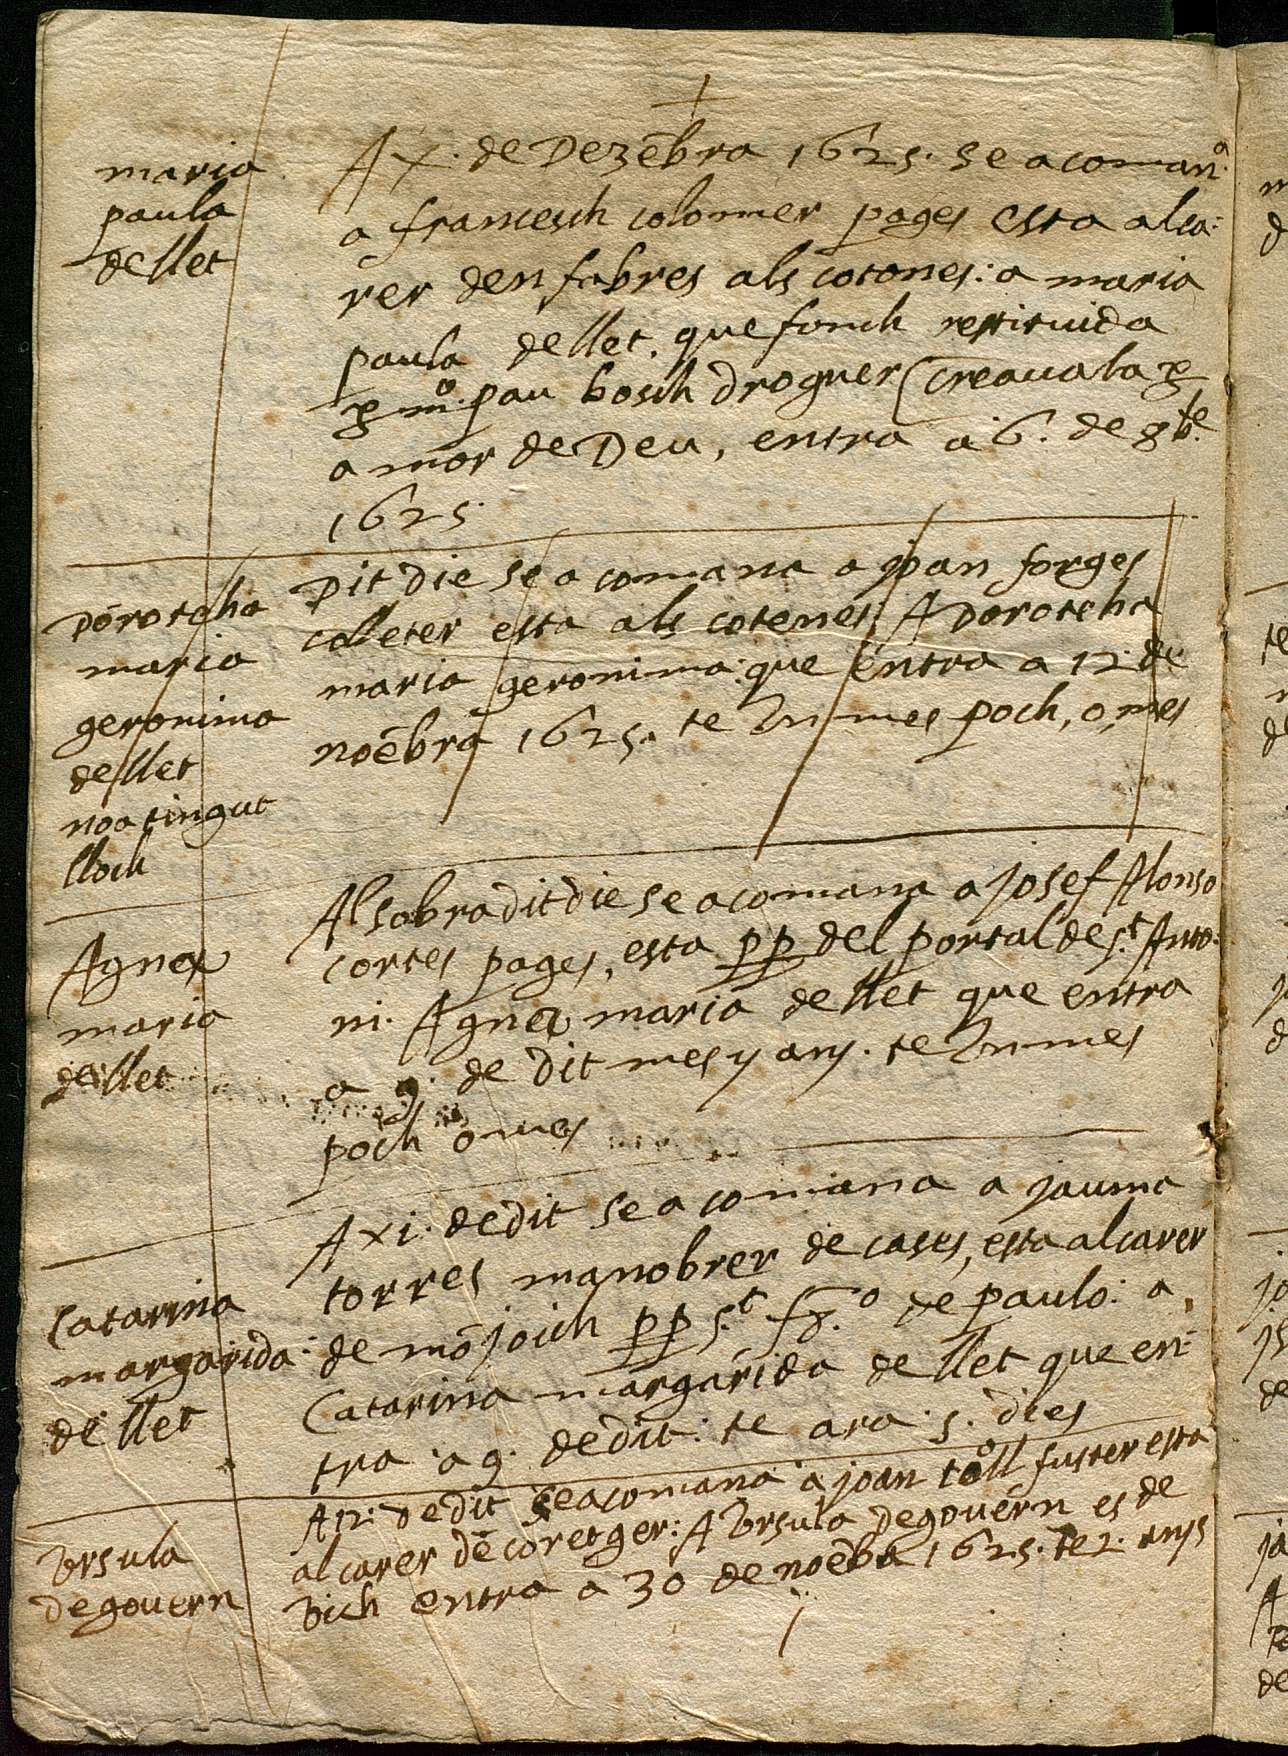 +
maria
paula
de llet
A x. de Dezēbra 1625. se acoman.ª
a francesch colomer pages esta al ca:
rer den fabres als cotones: a maria
paula de llet. que fonch restituida
p mº. pau bosch droguer (creauala p
amor de Deu, entra a 6. de 8bre.
1625.
Dorotcha
maria
geronima
de llet
no a tingut
lloch
Dit die se acomana a joan forges
colleter esta als cotenes: A Dorotcha
maria geronima: que entra a 12. de
noēbra 1625. te Vn mes poch, o mes
Agna
maria
de llet
Al sobradit die se acomana a josef Alonso
cortes pages, esta pp del portal de s.t Anto:
ni. Agna maria de llet que entra
a 9. de dit mes y any. te Vn mes
poch o mes
Catarina
margarida
de llet
A xi. de dit se acomana a jauma
torres manobrer de cases, esta al carer
de mōjoich pp s.t fr.º de paulo: a
Catarina margarida de llet que en:
tra a 9. de dit: te ara 5. dies
Vrsula
de gouern
A 12: de dit se acomana a joan toll fuster esta
al carer dē coretger: A Vrsula de gouern es de
Vich entra a 30 de noēbra 1625. te 2. anys